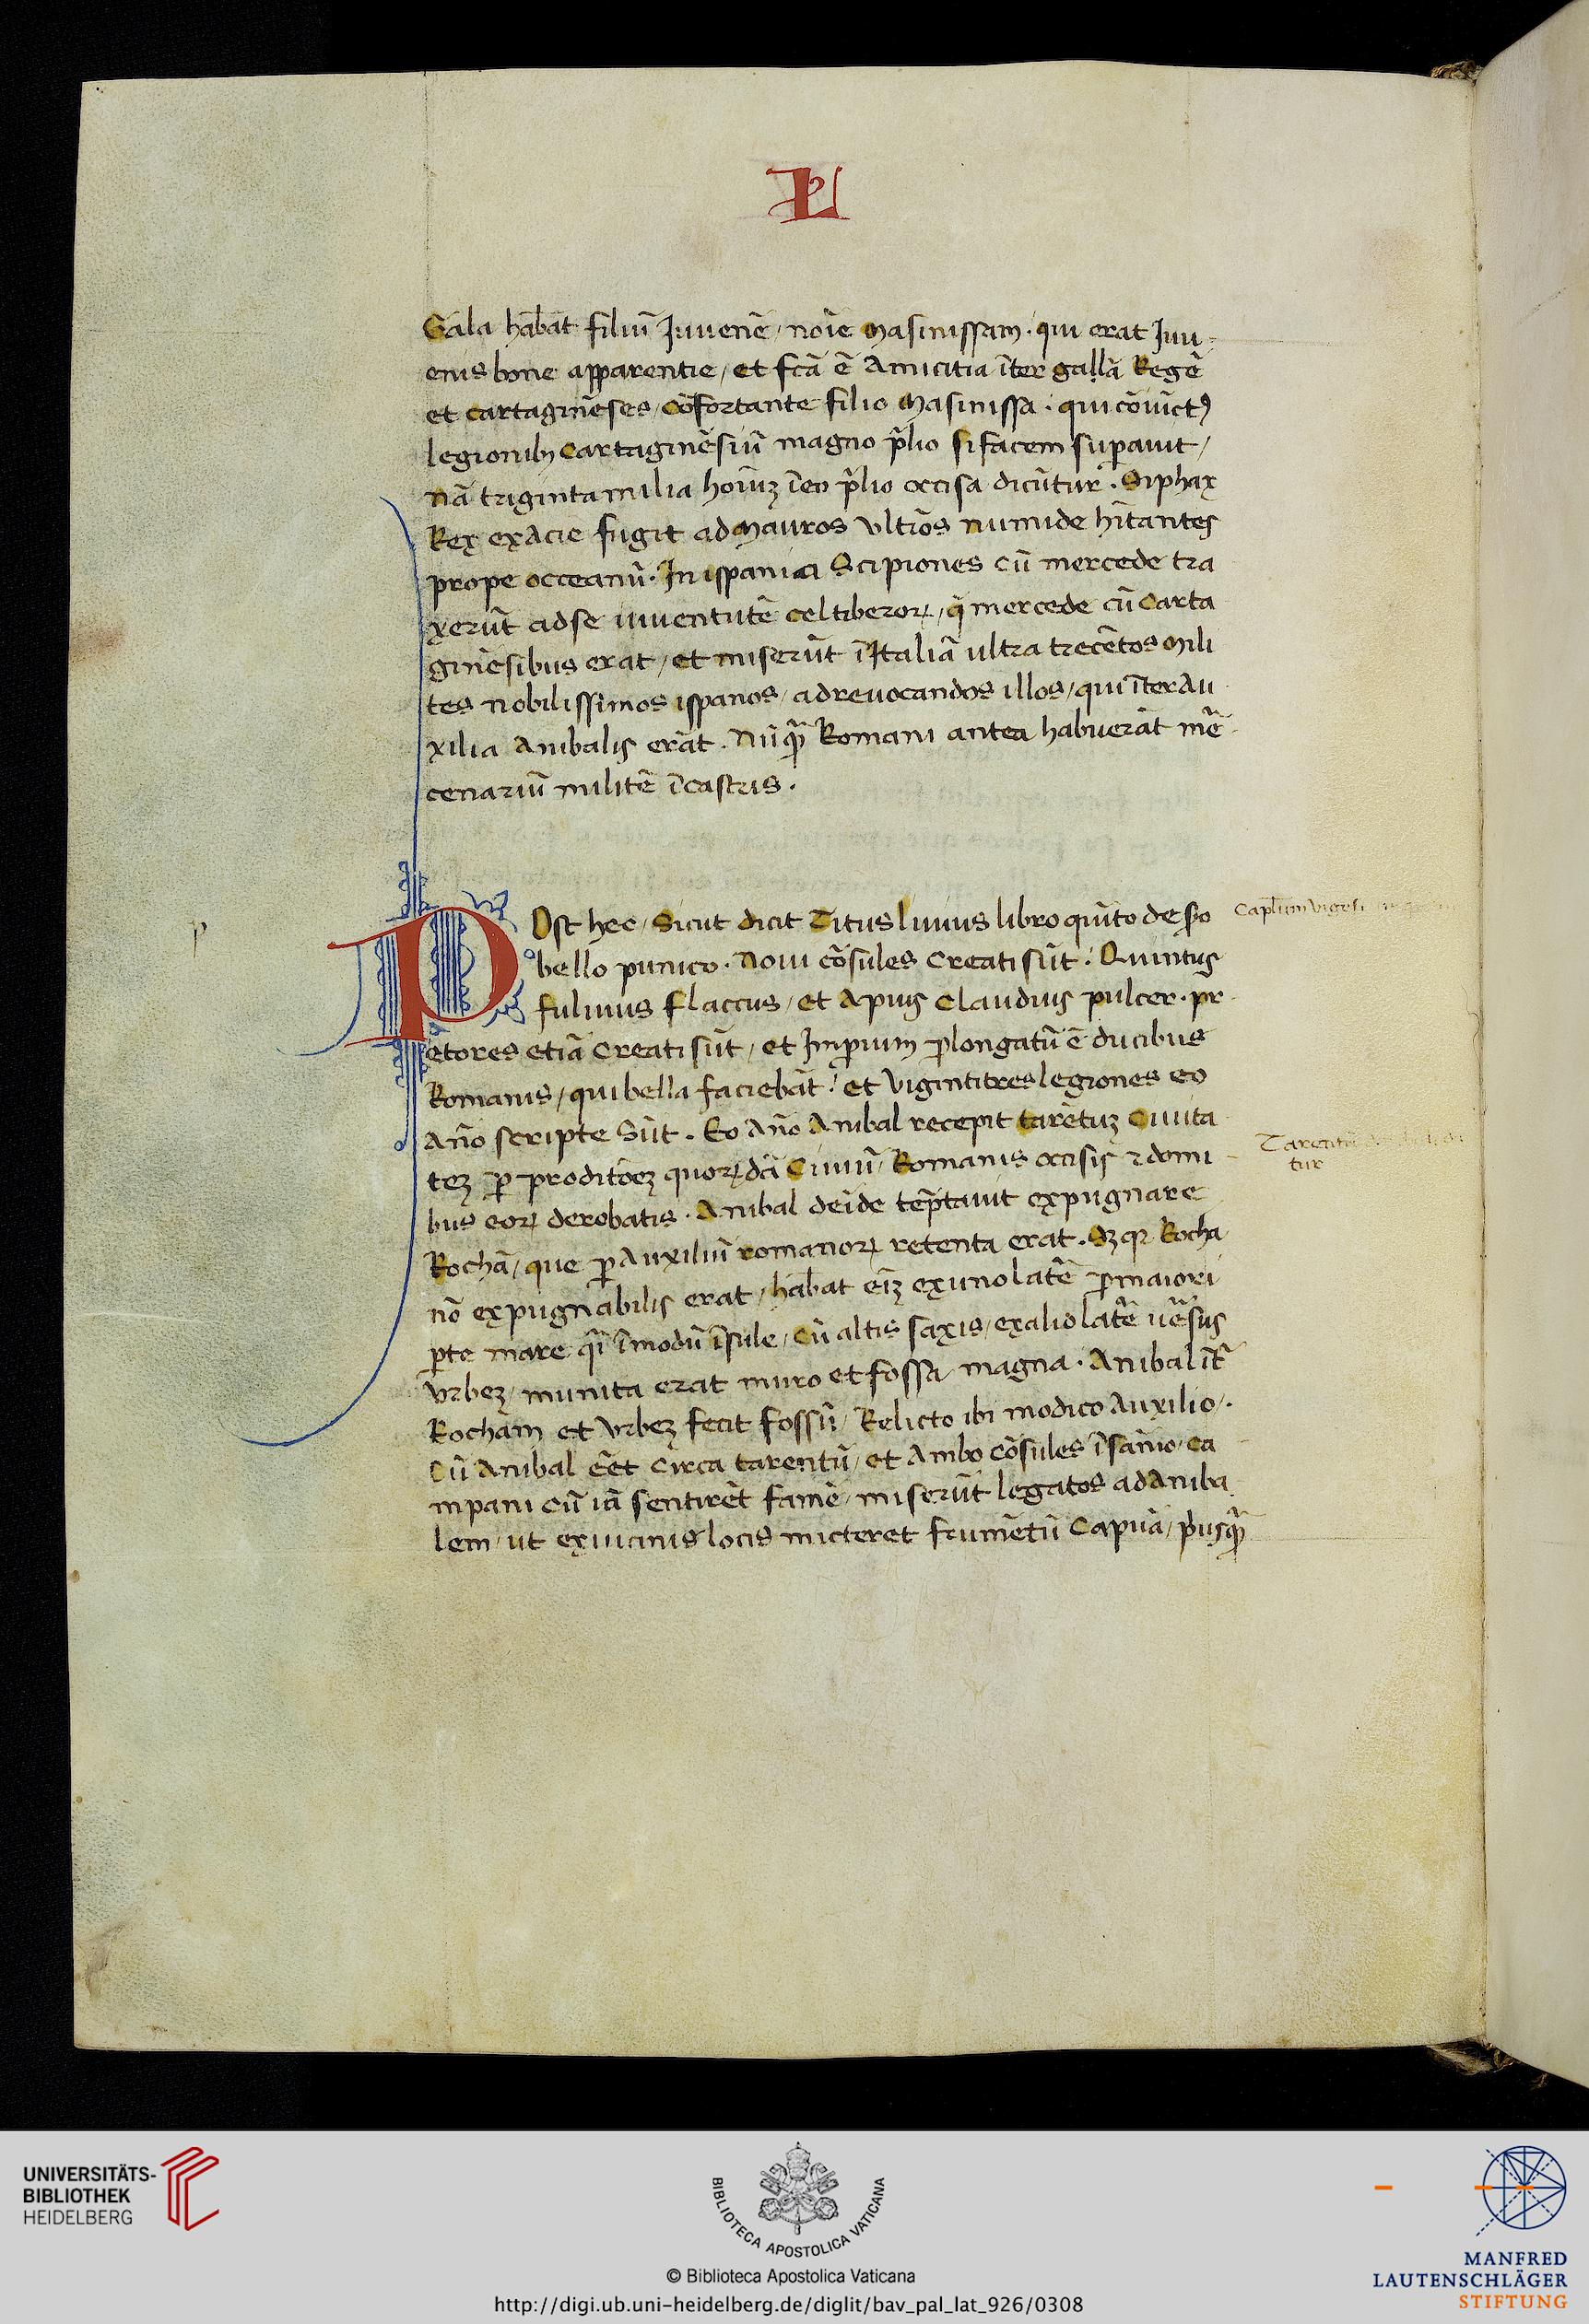 L
Gala hab̄at filiū Juuenē / noīe Masinissam · qui erat Juu
enis bone apparentie / et fc̄ā ē Amicitia īter gallā Regē
et cartaginēses / cōfortante filio Masinissa · qui cōuictꝰ
legionibꝫ cartaginēsiū magno p̄lio sifacem suꝑauit /
nā triginta milia hoīuꝫ ī eo p̄lio occisa dicūtur · Siphax
Rex ex Acie fugit ad Mauros vltīos numide hītantes
prope occeanū · In ispania Scipiones cū mercede tra
xerūt ad se iuuentutē celtiberoꝝ / q̄ mercede cū Carta
ginēsibus erat / et miserūt ī Italiā ultra trecētos Mili
tes nobilissimos ispanos / ad reuocandos illos / qui īter Au
xilia Anibalis erāt · Nūqꝫ Romani antea habuerāt mē
cenariū militē ī castris ·
Post hec / Sicut dicit Titus liuius libro quīto de s̄o
bello punico · Noui cōsules Creati sūt · Quintus
fuluius flaccus / et Apius Claudius pulcer · pr
etores etiā Creati sūt / et Imꝑium ꝓlongatū ē ducibus
Romanis / qui bella faciebāt · et vigintitres legiones eo
Āno scripte Sūt · Eo Āno Anibal recepit tarētuꝫ Ciuita
teꝫ ꝑ proditōeꝫ quoꝝdā Ciuiū / Romanis occisis ⁊ domi
bus eoꝝ derobatis · Anibal deīde tēptauit expugnare
Rochā / que ꝑ Auxiliū romanoꝝ retenta erat · Sꝫ qꝛ Rocha
nō expugnabilis erat / hab̄at eīꝫ ex uno latē ꝑ maiori
ꝑte mare q̄i ī modū īsule / cū altis saxis / ex alio latē uēsus
vrbeꝫ / munita erat muro et fossa magna · Anibal īt̄
Rocham et vrbeꝫ fecit fossū / Relicto ibi modico Auxilio / ·
Cū Anibal ēēt Circa tarentū / et Ambo cōsules ī sānio / ca
mpani cū iā sentirēt famē / miserūt legatos ad Aniba
lem / ut ex uicinis locis micteret frumētū Capuā / pusqꝫ
p
Tarentū
tur
UNIVERSITÄTS-
BIBLIOTHEK
HEIDELBERG
BIBLIOTECA APOSTOLICA VATICANA
© Biblioteca Apostolica Vaticana
http://digi.ub.uni-heidelberg.de/diglit/bav_pal_lat_926/0308
MANFRED
LAUTENSCHLÄGER
STIFTUNG